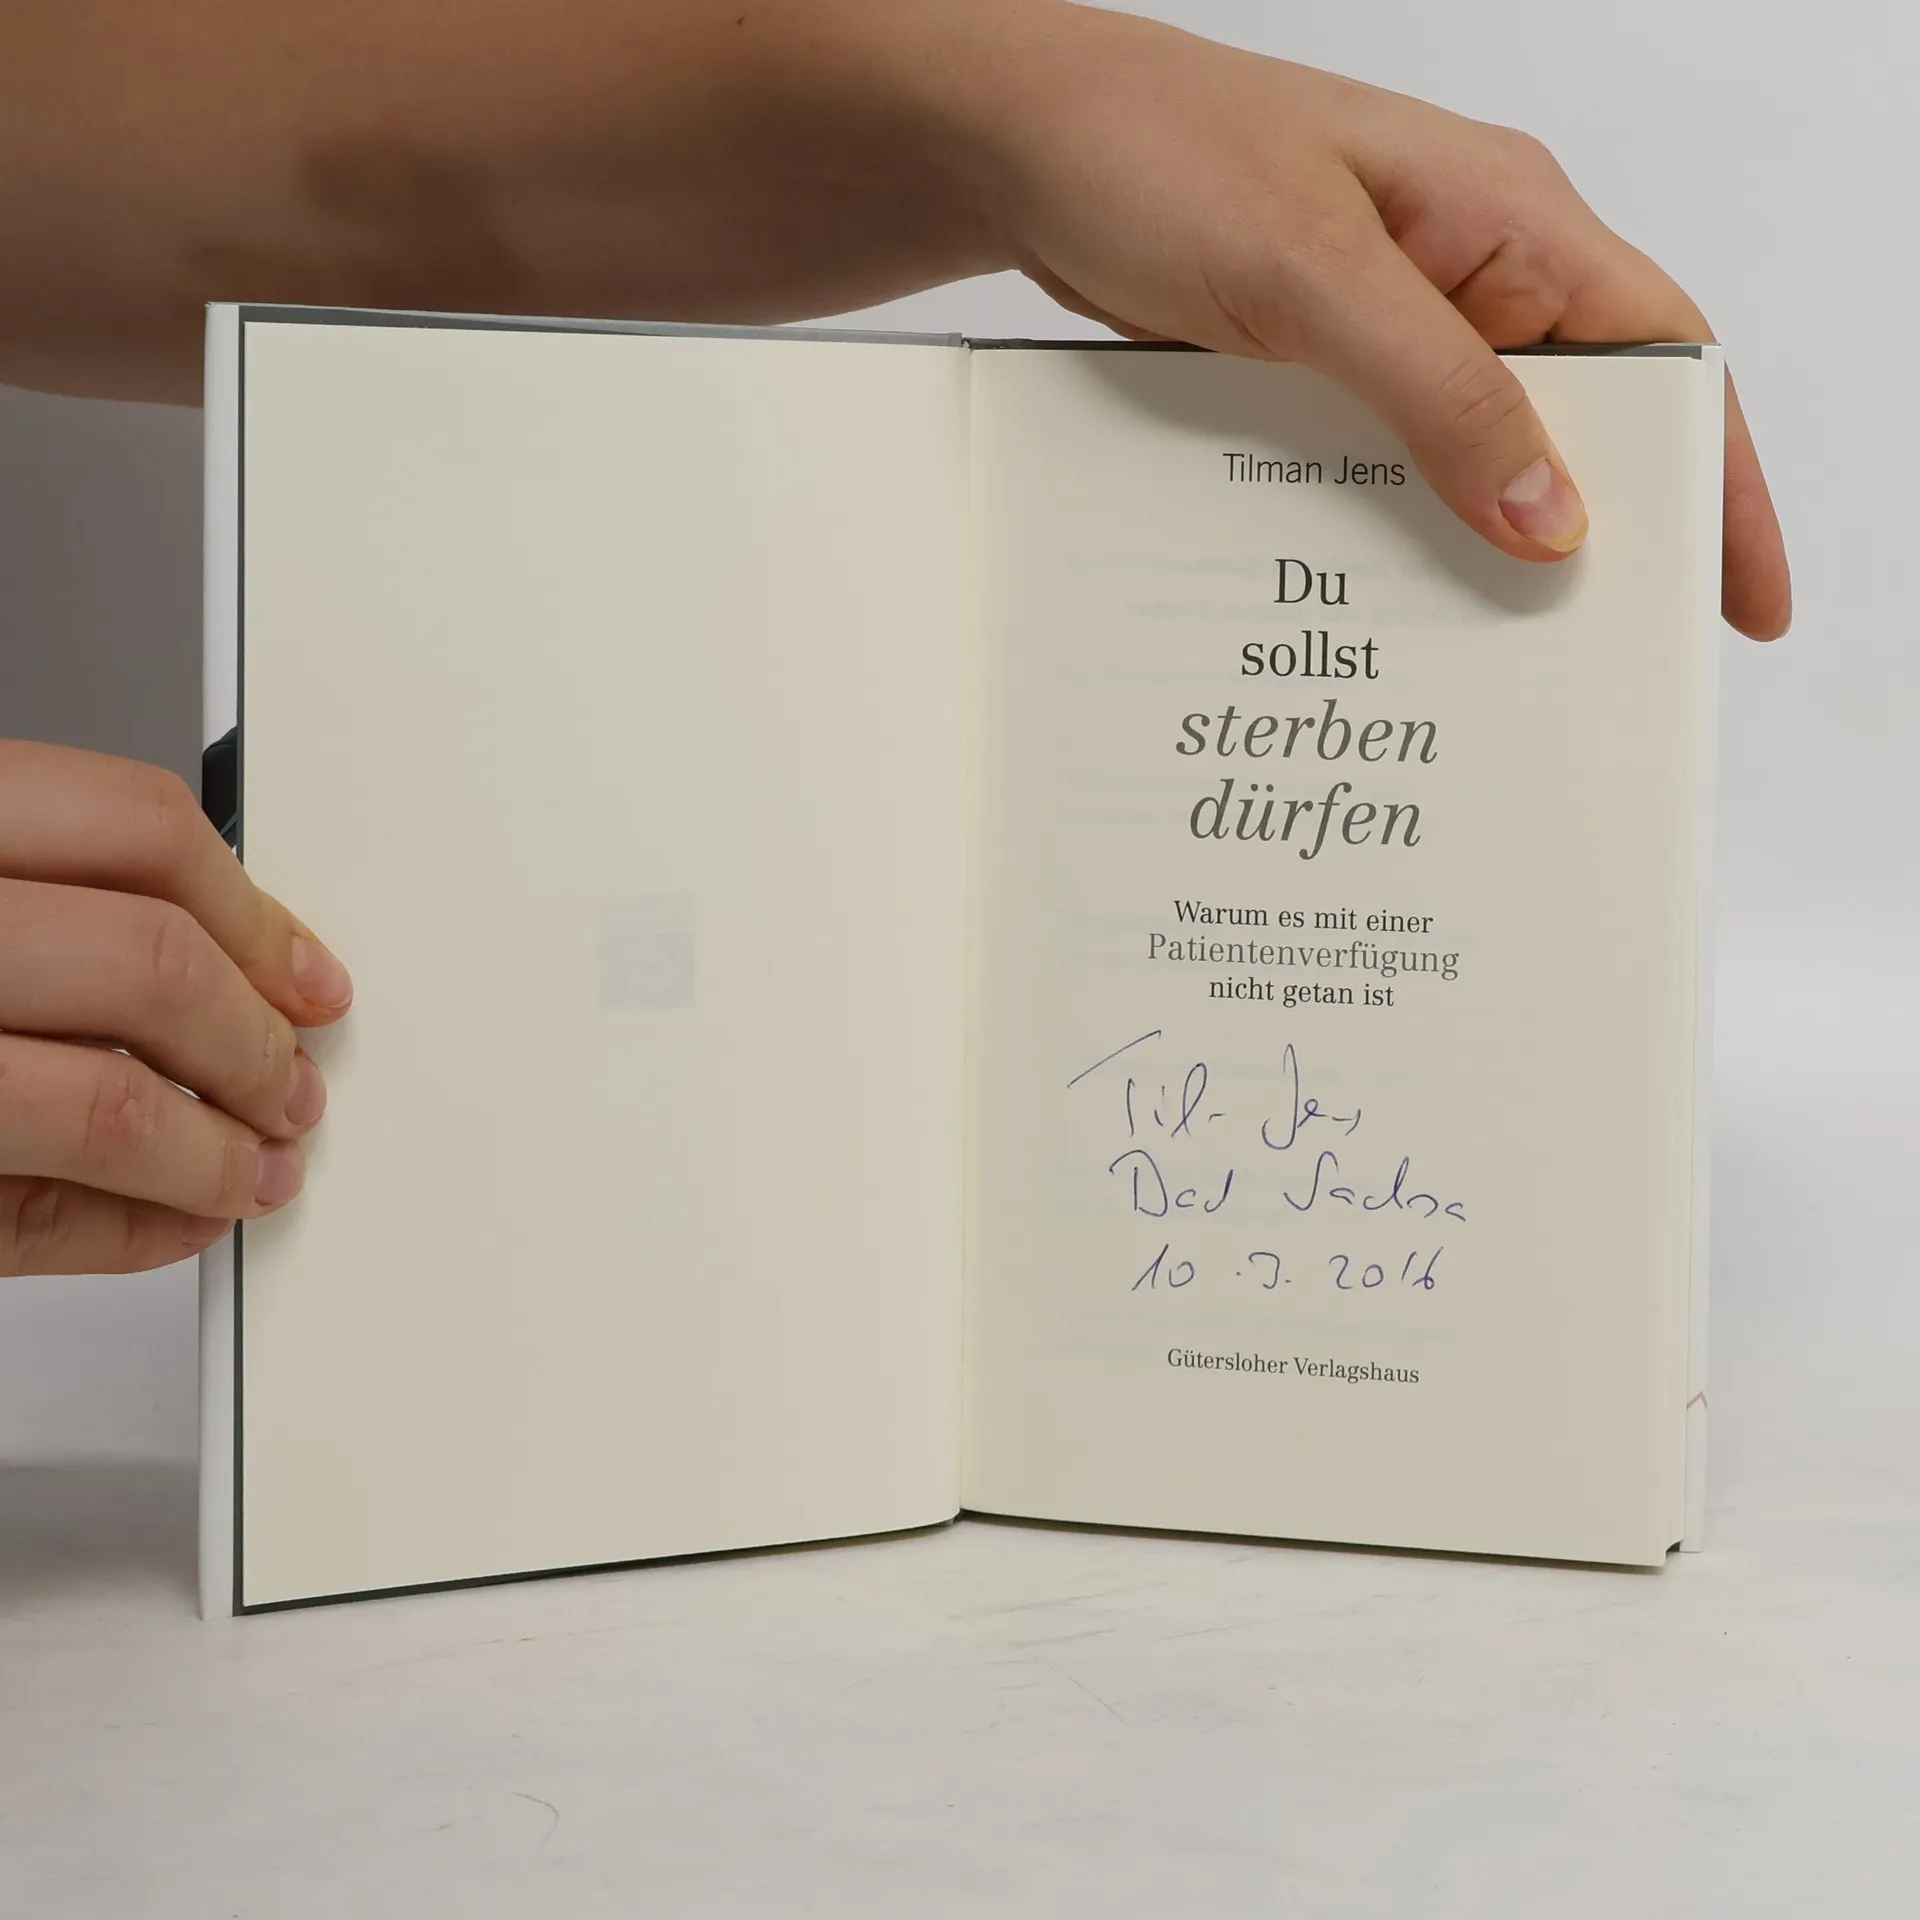 Tilman Jens
Du
sollst
sterben
dürfen
Warum es mit einer
Patientenverfügung
nicht getan ist
Til- Jens
Bad Sachsa
10.3.2016
Gütersloher Verlagshaus